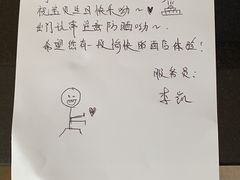 祝宝贝生日快乐呦～
出门记带好防晒呦～
希望您有一段愉快的酒店体验！
服务员：
李凯